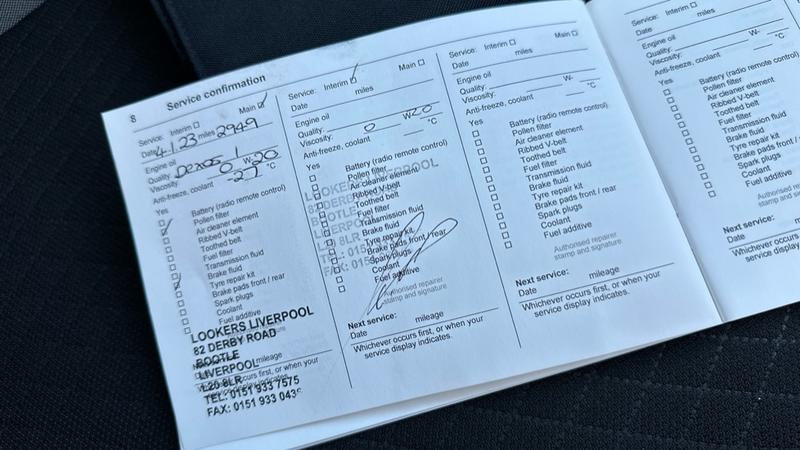 8 Service confirmation
Service: Interim Main
Date 4.1.23 miles 2949
Engine oil
Quality: Dexos 1
Viscosity: 0 W- 20
Anti-freeze, coolant -27 °C
Yes
Battery (radio remote control)
Pollen filter
Air cleaner element
Ribbed V-belt
Toothed belt
Fuel filter
Transmission fluid
Brake fluid
Tyre repair kit
Brake pads front / rear
Spark plugs
Coolant
Fuel additive
LOOKERS LIVERPOOL
82 DERBY ROAD
BOOTLE
LIVERPOOL
L20 8LR
TEL: 0151 933 7575
FAX: 0151 933 043
mileage
Service: Interim Main
Date miles
Engine oil
Quality:
Viscosity: 0 W 20
Anti-freeze, coolant °C
Yes
Battery (radio remote control)
Pollen filter
Air cleaner element
Ribbed V-belt
Toothed belt
Fuel filter
Transmission fluid
Brake fluid
Tyre repair kit
Brake pads front / rear
Spark plugs
Coolant
Fuel additive
LOOKERS LIVERPOOL
Authorised repairer
stamp and signature
Next service:
Date mileage
Whichever occurs first, or when your
service display indicates.
Service: Interim Main
Date miles
Engine oil
Quality:
Viscosity: W-
Anti-freeze, coolant °C
Yes
Battery (radio remote control)
Pollen filter
Air cleaner element
Ribbed V-belt
Toothed belt
Fuel filter
Transmission fluid
Brake fluid
Tyre repair kit
Brake pads front / rear
Spark plugs
Coolant
Fuel additive
Authorised repairer
stamp and signature
Next service:
Date mileage
Whichever occurs first, or when your
service display indicates.
Service: Interim
Date miles
Engine oil
Quality:
Viscosity: W-
Anti-freeze, coolant
Yes
Battery (radio remote control)
Pollen filter
Air cleaner element
Ribbed V-belt
Toothed belt
Fuel filter
Transmission fluid
Brake fluid
Tyre repair kit
Brake pads front / rear
Spark plugs
Coolant
Fuel additive
Authorised
stamp and
Next service:
Date mileage
Whichever occurs first, or
service display indicates.